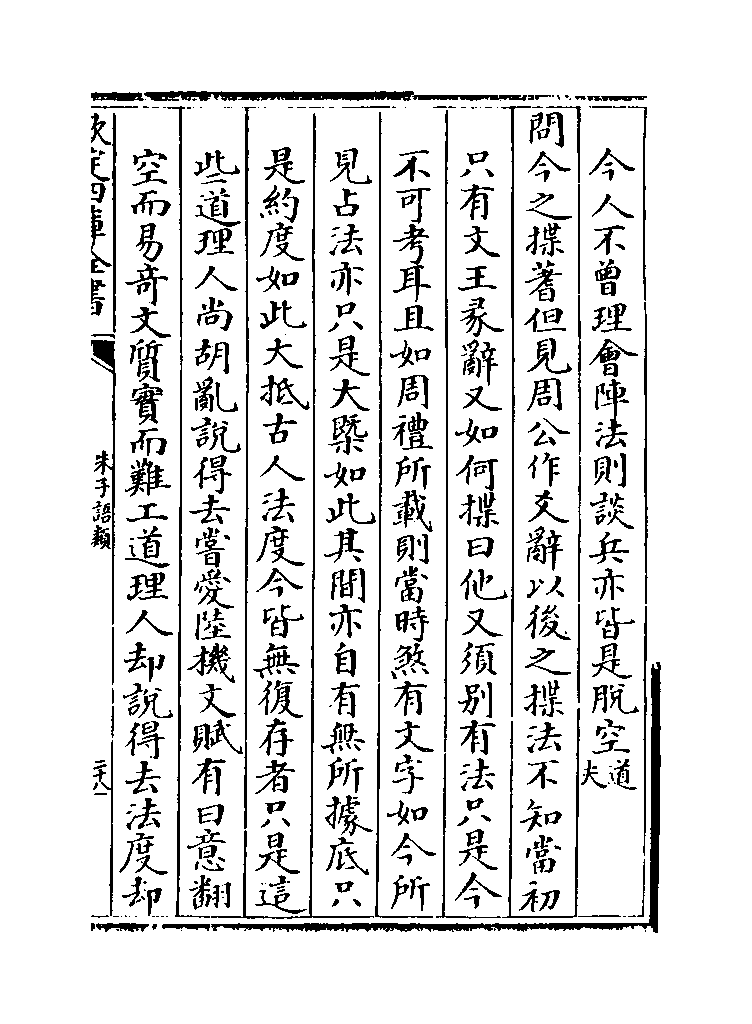 今人不曾理會陣法則談兵亦皆是脱空道夫
問今之揲蓍但見周公作爻辭以後之揲法不知當初
只有文王彖辭又如何揲曰他又須别有法只是今
不可考耳且如周禮所載則當時煞有文字如今所
見占法亦只是大槩如此其間亦自有無所據底只
是約度如此大抵古人法度今皆無復存者只是這
些道理人尚胡亂說得去嘗愛陸機文賦有曰意翻
空而易竒文質實而難工道理人却說得去法度却
欽定四庫全書
朱子語類
二十八